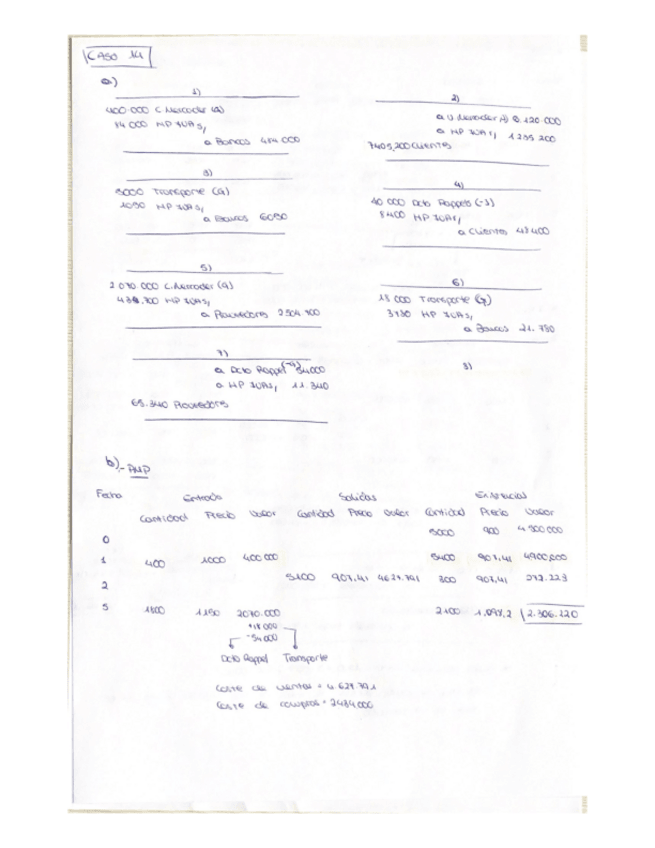 CASO 14
a)
1)
400.000 C. Mercader (a)
84 000 HP IVAs,
a Bancos 484 000
2)
a V. Mercader (i) 6.120.000
a HP IVAr, 1 285 200
7405,200 Clientes
3)
5000 Transporte (a)
1050 HP IVAs,
a Bancos 6050
4)
40 000 Dcto Rappels (-i)
8400 HP IVAr,
a Clientes 48400
5)
2 070.000 C. Mercader (a)
434.700 HP IVAs,
a Proveedores 2 504 700
6)
18 000 Transporte (a)
3780 HP IVAs,
a Bancos 21.780
7)
a Dcto Rappel (-a) 54000
a HP IVAs, 11.340
65.340 Proveedores
8)
b).- PMP
Fecha Entrada Salidas Existencias
Cantidad Precio Valor Cantidad Precio Valor Cantidad Precio Valor
0 5000 900 4 500 000
1 400 1000 400 000 5400 907,41 4900,000
2 5100 907,41 300 907,41 272.223
5 1800 1150 2070.000 2100 1.098,2 2.306.220
+18 000
-54 000
Dcto Rappel Transporte
Coste de ventas =
Coste de compras = 2434,000